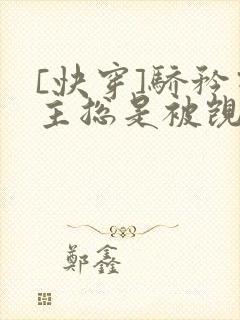 [快穿]骄矜
主总是被觊
鄭鑫